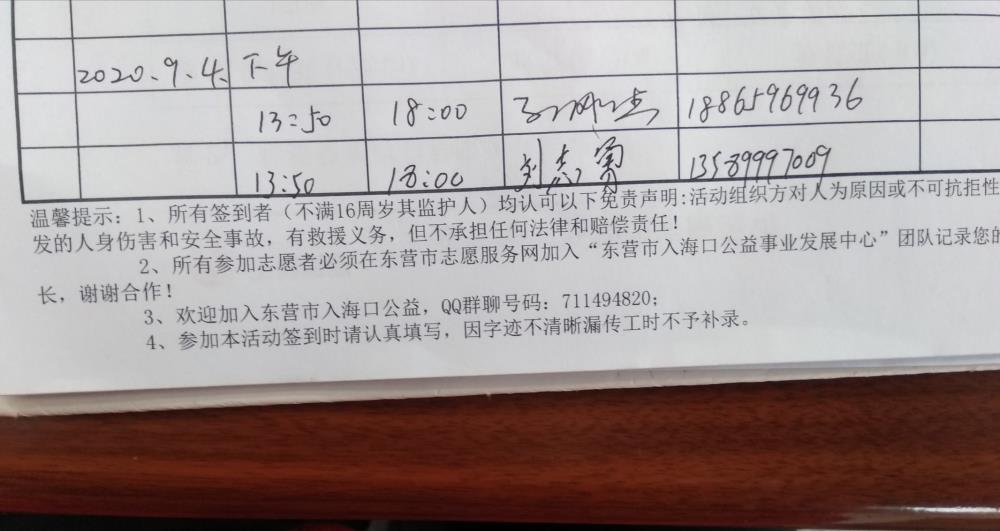 2020.9.4. 下午
13:50 18:00 18865969936
13:50 18:00 刘志勇 13589997009
温馨提示：1、所有签到者（不满16周岁其监护人）均认可以下免责声明:活动组织方对人为原因或不可抗拒性
发的人身伤害和安全事故，有救援义务，但不承担任何法律和赔偿责任！
2、所有参加志愿者必须在东营市志愿服务网加入“东营市入海口公益事业发展中心”团队记录您的
长，谢谢合作！
3、欢迎加入东营市入海口公益，QQ群聊号码：711494820；
4、参加本活动签到时请认真填写，因字迹不清晰漏传工时不予补录。